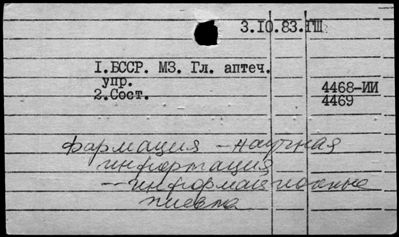 3.10.83.ГШ
1.БССР. МЗ. Гл. аптеч.
упр.
2.Сост.
4468-ИИ
4469
фармация - научная
информация
- информационные
письма